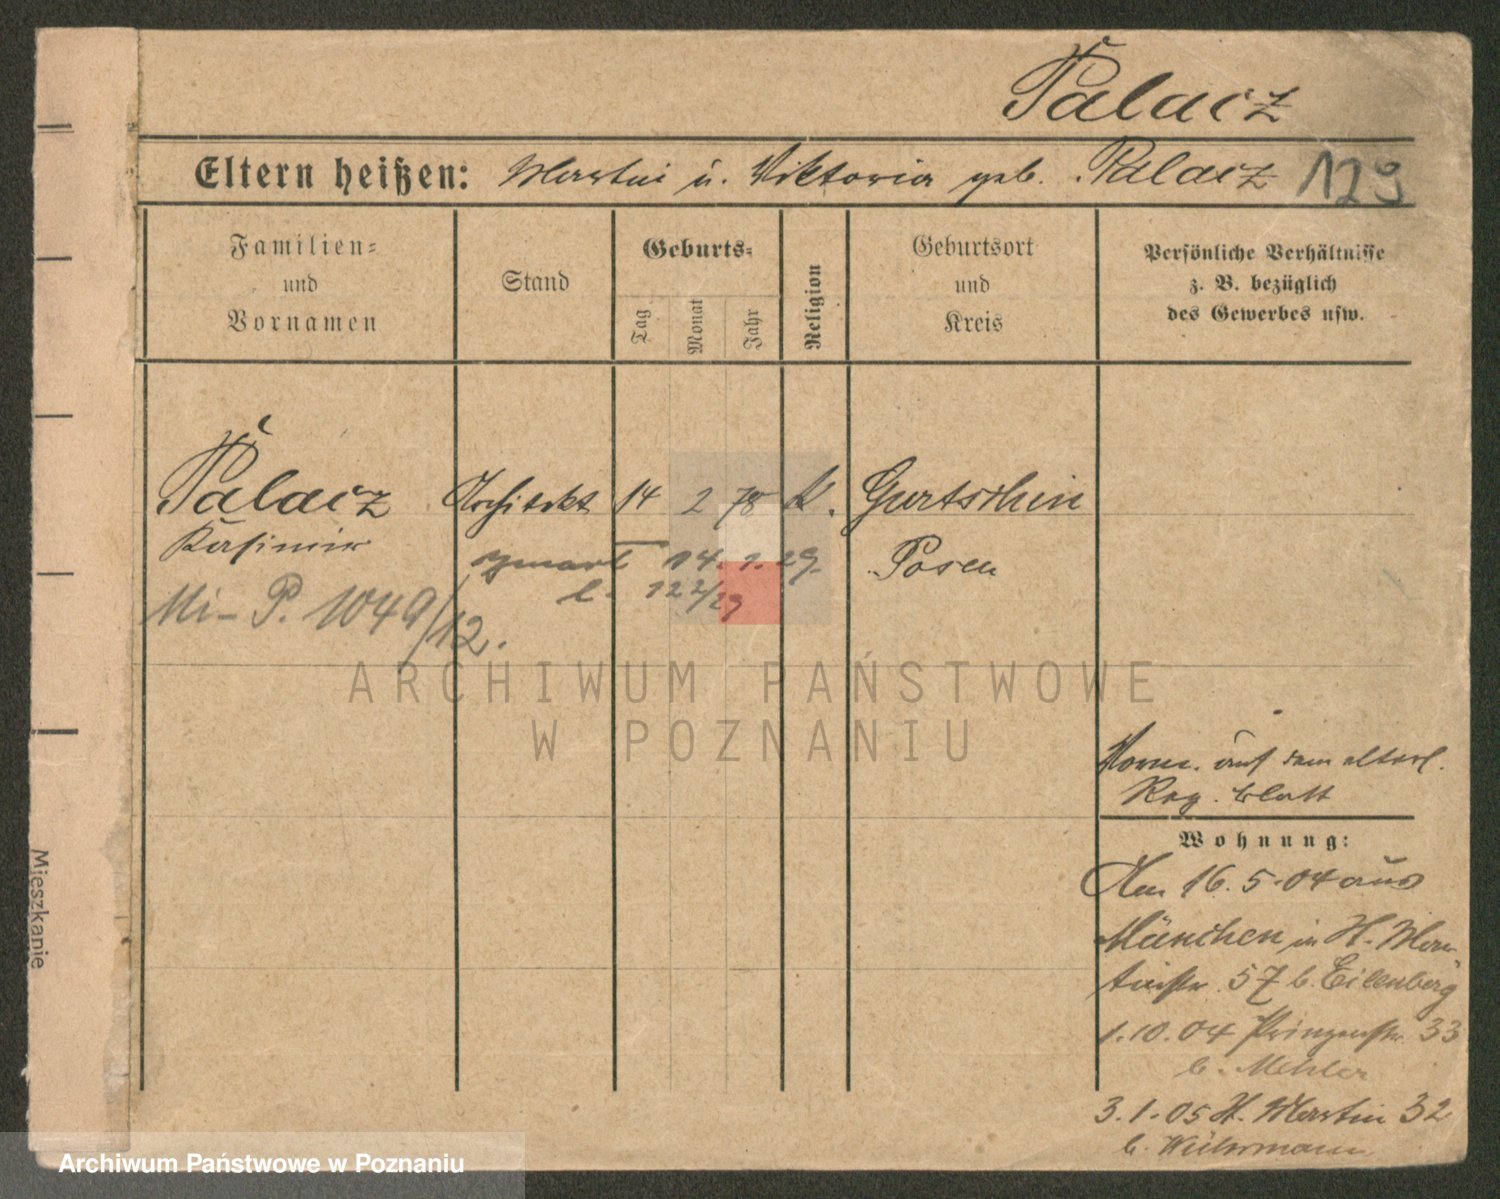 Palacz
Eltern heißen: Martin u. Viktoria geb. Palacz 129
Familien-
und
Vornamen
Stand
Geburts-
Tag
Monat
Jahr
Religion
Geburtsort
und
Kreis
Persönliche Verhältnisse
z. B. bezüglich
des Gewerbes usw.
Palacz Architekt 14 2 78 K. Gurtschin
Kasimir
zmarł 14.1.29. Posen
l. 122/29
Mi-P. 1049/12.
ARCHIWUM PAŃSTWOWE
W POZNANIU
auf dem elterl.
Reg. blatt
Wohnung:
Am 16.5.04 aus
München in St. Mar
tinstr. 57 b. Eilenberg
1.10.04 Prinzenstr. 33
b. Mehler
3.1.05 St. Martin 32
b.
Mieszkanie
Archiwum Państwowe w Poznaniu